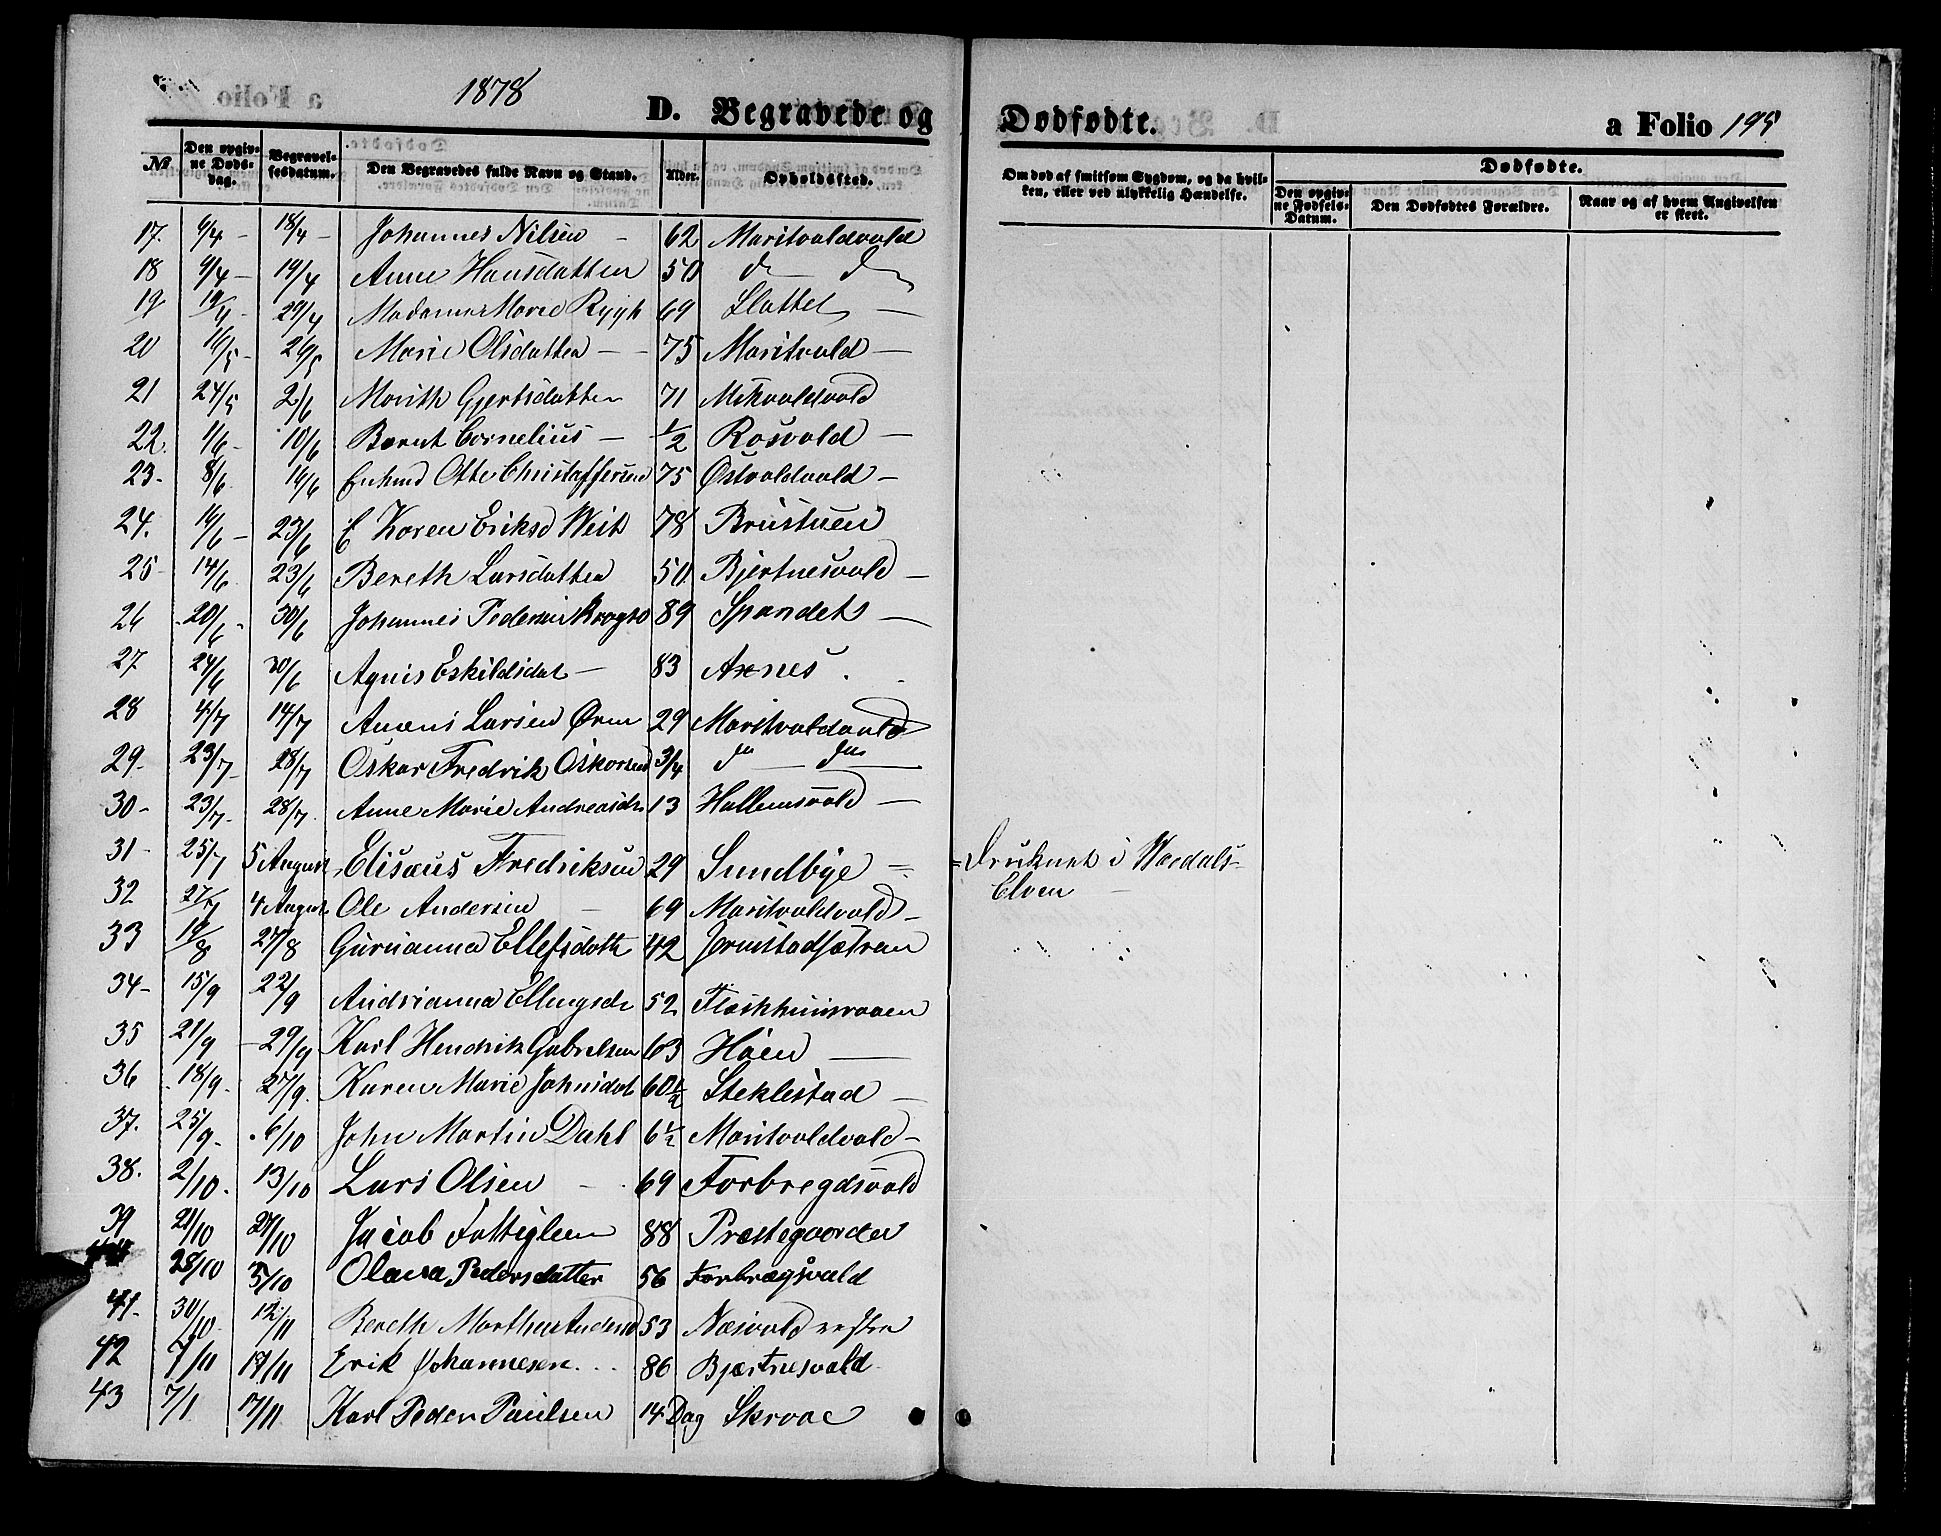 1878
D. Begravede og Dødfødte. a Folio 195
No. Den opgivne Døds-dag. Begravelsesdatum. Den Begravedes fulde Navn og Stand. Alder. Opholdssted. Om død af smitsom Sygdom, og da hvilken, eller ved ulykkelig Hændelse. Dødfødte. Den opgivne Fødsels-Datum. Den Dødfødtes Forældre. Naar og af hvem Angivelsen er skeet.
17. 9/4 - 18/4 - Johannes Nilsen - 62 Maritvoldvald
18 9/4 - 19/4 Anne Hansdatter 50 do do
19 19/4 - 29/4 Madame Marie Rygh 69 Slottet -
20 16/5 - 26/5 Marie Olsdatter - - 75 Maritvald -
21 24/5 2/6 Marith Gjertsdatter 71 Mikvoldvald
22. 1/6 - 10/6 Bernt Cornelius - 1/2 Rosvold -
23. 8/6 16/6 Enkmd Otte Christaffersen 75 Østvoldvald -
24. 16/6 - 23/6 E Karen Eriksd Weis 78 Brustuen
25 - 14/6 23/6 Bereth Larsdatter 50 Bjertnesvald -
26 20/6 - 30/6 Johannes Pedersen 89 Spandet -
27 24/6 30/6 Agnis Eskildsdat - 83 Axnes .
28 4/7 14/7 Larsen Ørm 29 Maritvoldvald
29. 23/7 - 28/7 Oskar Fredrik Oskarsen 3/4 do do
30 - 23/7 - 28/7 Anne Marie Andreasdr 13 Hallemsvald -
31 - 25/7 5 August Elisæus Fredriksen 29 Sundbye = = Druknet i Værdals-
Elven -
32 27/7 4 August Ole Andersen - 69 Maritvoldvald -
33 19/8 27/8 Gurianna Ellefsdatt 42 Jermstadsætran
34 - 15/9 22/9 Andrianna Ellingsdr 52
35 21/9 - 29/9 Karl Hendrik Gabrielsen 63 Håen -
36 18/9 27/9 Karen Marie Johnsdat 60 1/2 Steklestad -
37. 25/9 6/10 John Martin Dahl 6 1/2 Maritvoldvald -
38. 2/10. 13/10 Lars Olsen - 69 Forbregdsvald
39 21/10 27/10 Jacob Fattiglem 88 Præstegaarden
28/10 3/10 Olava Pedersdatter 56 Forbrægsvald
41. 30/10 12/11 Bereth Martha Andersd 53 Næsvald vestre
42 7/11 17/11 Erik Johannesen . . . 86 Bjærtnesvald
43 7/1 17/11 Karl Peder Paulsen 14 Dag Skrove